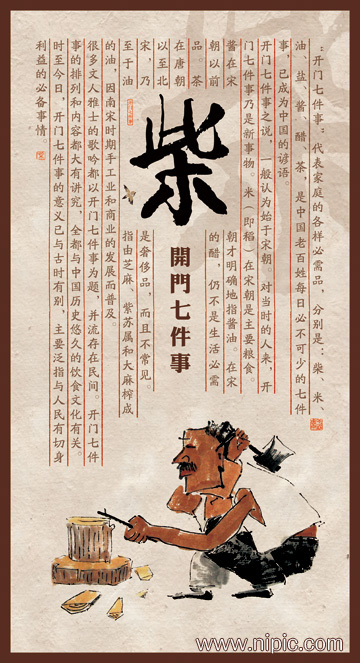 ：开门七件事：代表家庭的各样必需品，分别是：柴、米、
油、盐、酱、醋、茶，是中国老百姓每日必不可少的七件
事，已成为中国的谚语。
开门七件事之说，一般认为始于宋朝。对当时的人来，开
门七件事乃是新事物。米（即稻）在宋朝是主要粮食。
酱在宋
朝才明确地指酱油。在宋
朝以前
的醋，仍不是生活必需
品。茶
在唐朝
以至北
宋，乃
是奢侈品，而且不常见。
至于油
指由芝麻、紫苏属和大麻榨成
的油，因南宋时期手工业和商业的发展而普及。
很多文人雅士的歌吟都以开门七件事为题，并流存在民间。开门七件
事的排列和内容都大有讲究，全都与中国历史悠久的饮食文化有关。
时至今日，开门七件事的意义已与古时有别，主要泛指与人民有切身
利益的必备事情。
柴
開門七件事
www.nipic.com